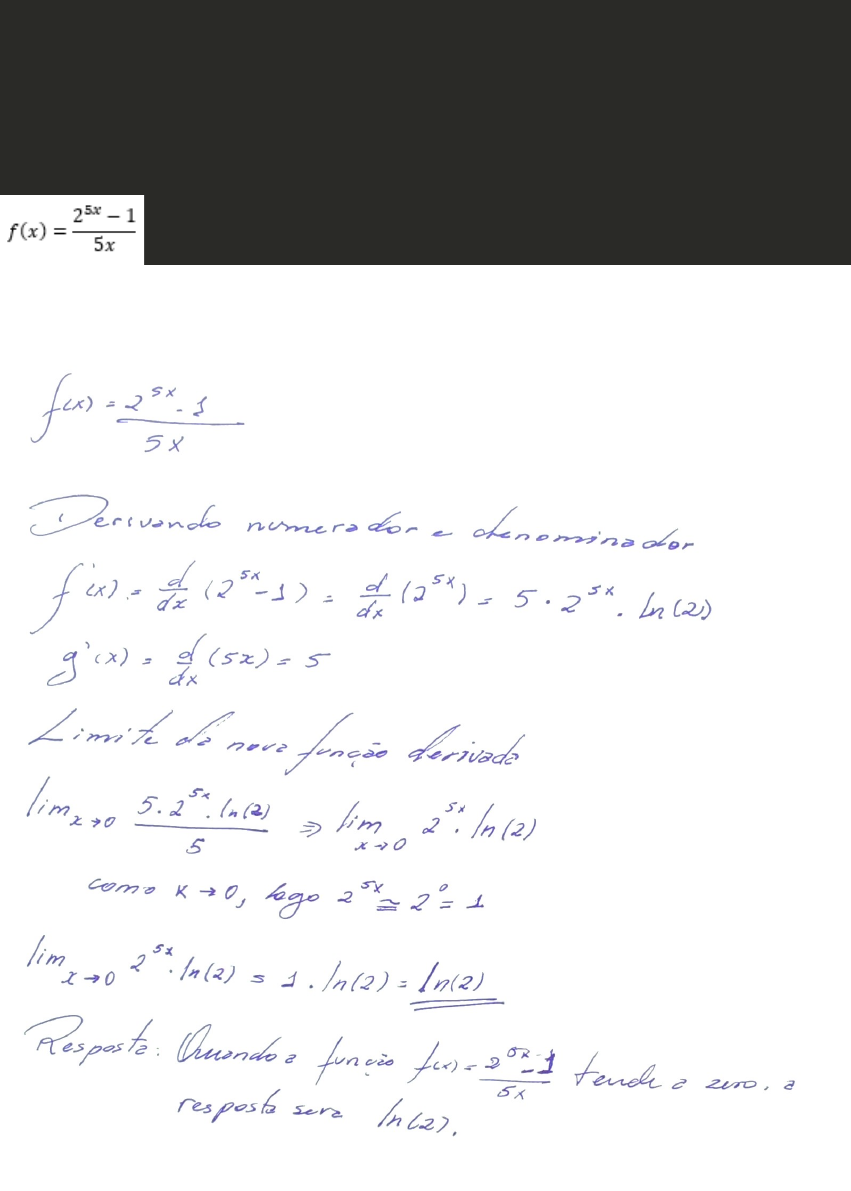 f(x) = (2^{5x} − 1)/(5x)
f(x) = (2^{5x} - 1)/(5x)
Derivando numerador e denominador
f'(x) = d/dx (2^{5x} - 1) = d/dx (2^{5x}) = 5 · 2^{5x} · ln(2)
g'(x) = d/dx (5x) = 5
Limite da nova função derivada
lim_{x→0} (5 · 2^{5x} · ln(2))/5 ⇒ lim_{x→0} 2^{5x} · ln(2)
como x → 0, logo 2^{5x} ≅ 2^0 = 1
lim_{x→0} 2^{5x} · ln(2) = 1 · ln(2) = ln(2)
Resposta: Quando a função f(x) = (2^{5x} - 1)/(5x) tende a zero, a
resposta sera ln(2).